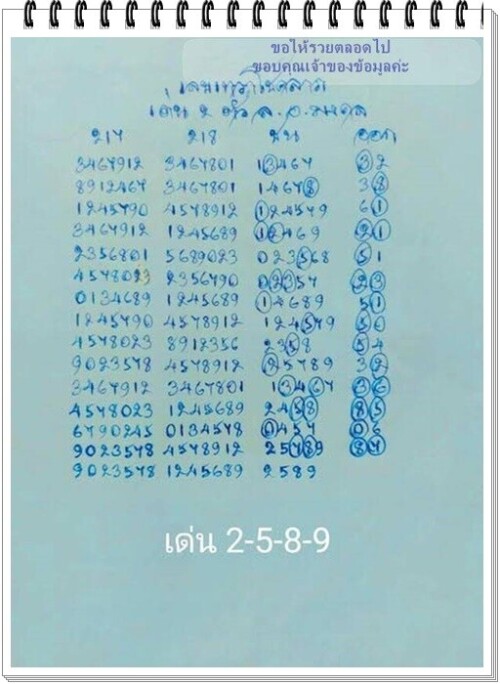 ขอให้รวยตลอดไป
ขอบคุณเจ้าของข้อมูลค่ะ
217 218 ชน ออก
3467912 3467801 13467 32
8912467 3467801 14678 38
1245790 4578912 124579 61
3467912 1245689 12469 21
2356801 5689023 023568 51
4578023 2356790 02357 23
0134689 1245689 14689 51
1245790 4578912 124579 50
4578023 8912356 2358 54
9023578 4578912 25789 32
3467912 3467801 13467 36
4578023 1245689 2458 85
6790245 0134578 0457 05
9023578 4578912 25789 87
9023578 1245689 2589
เด่น 2-5-8-9